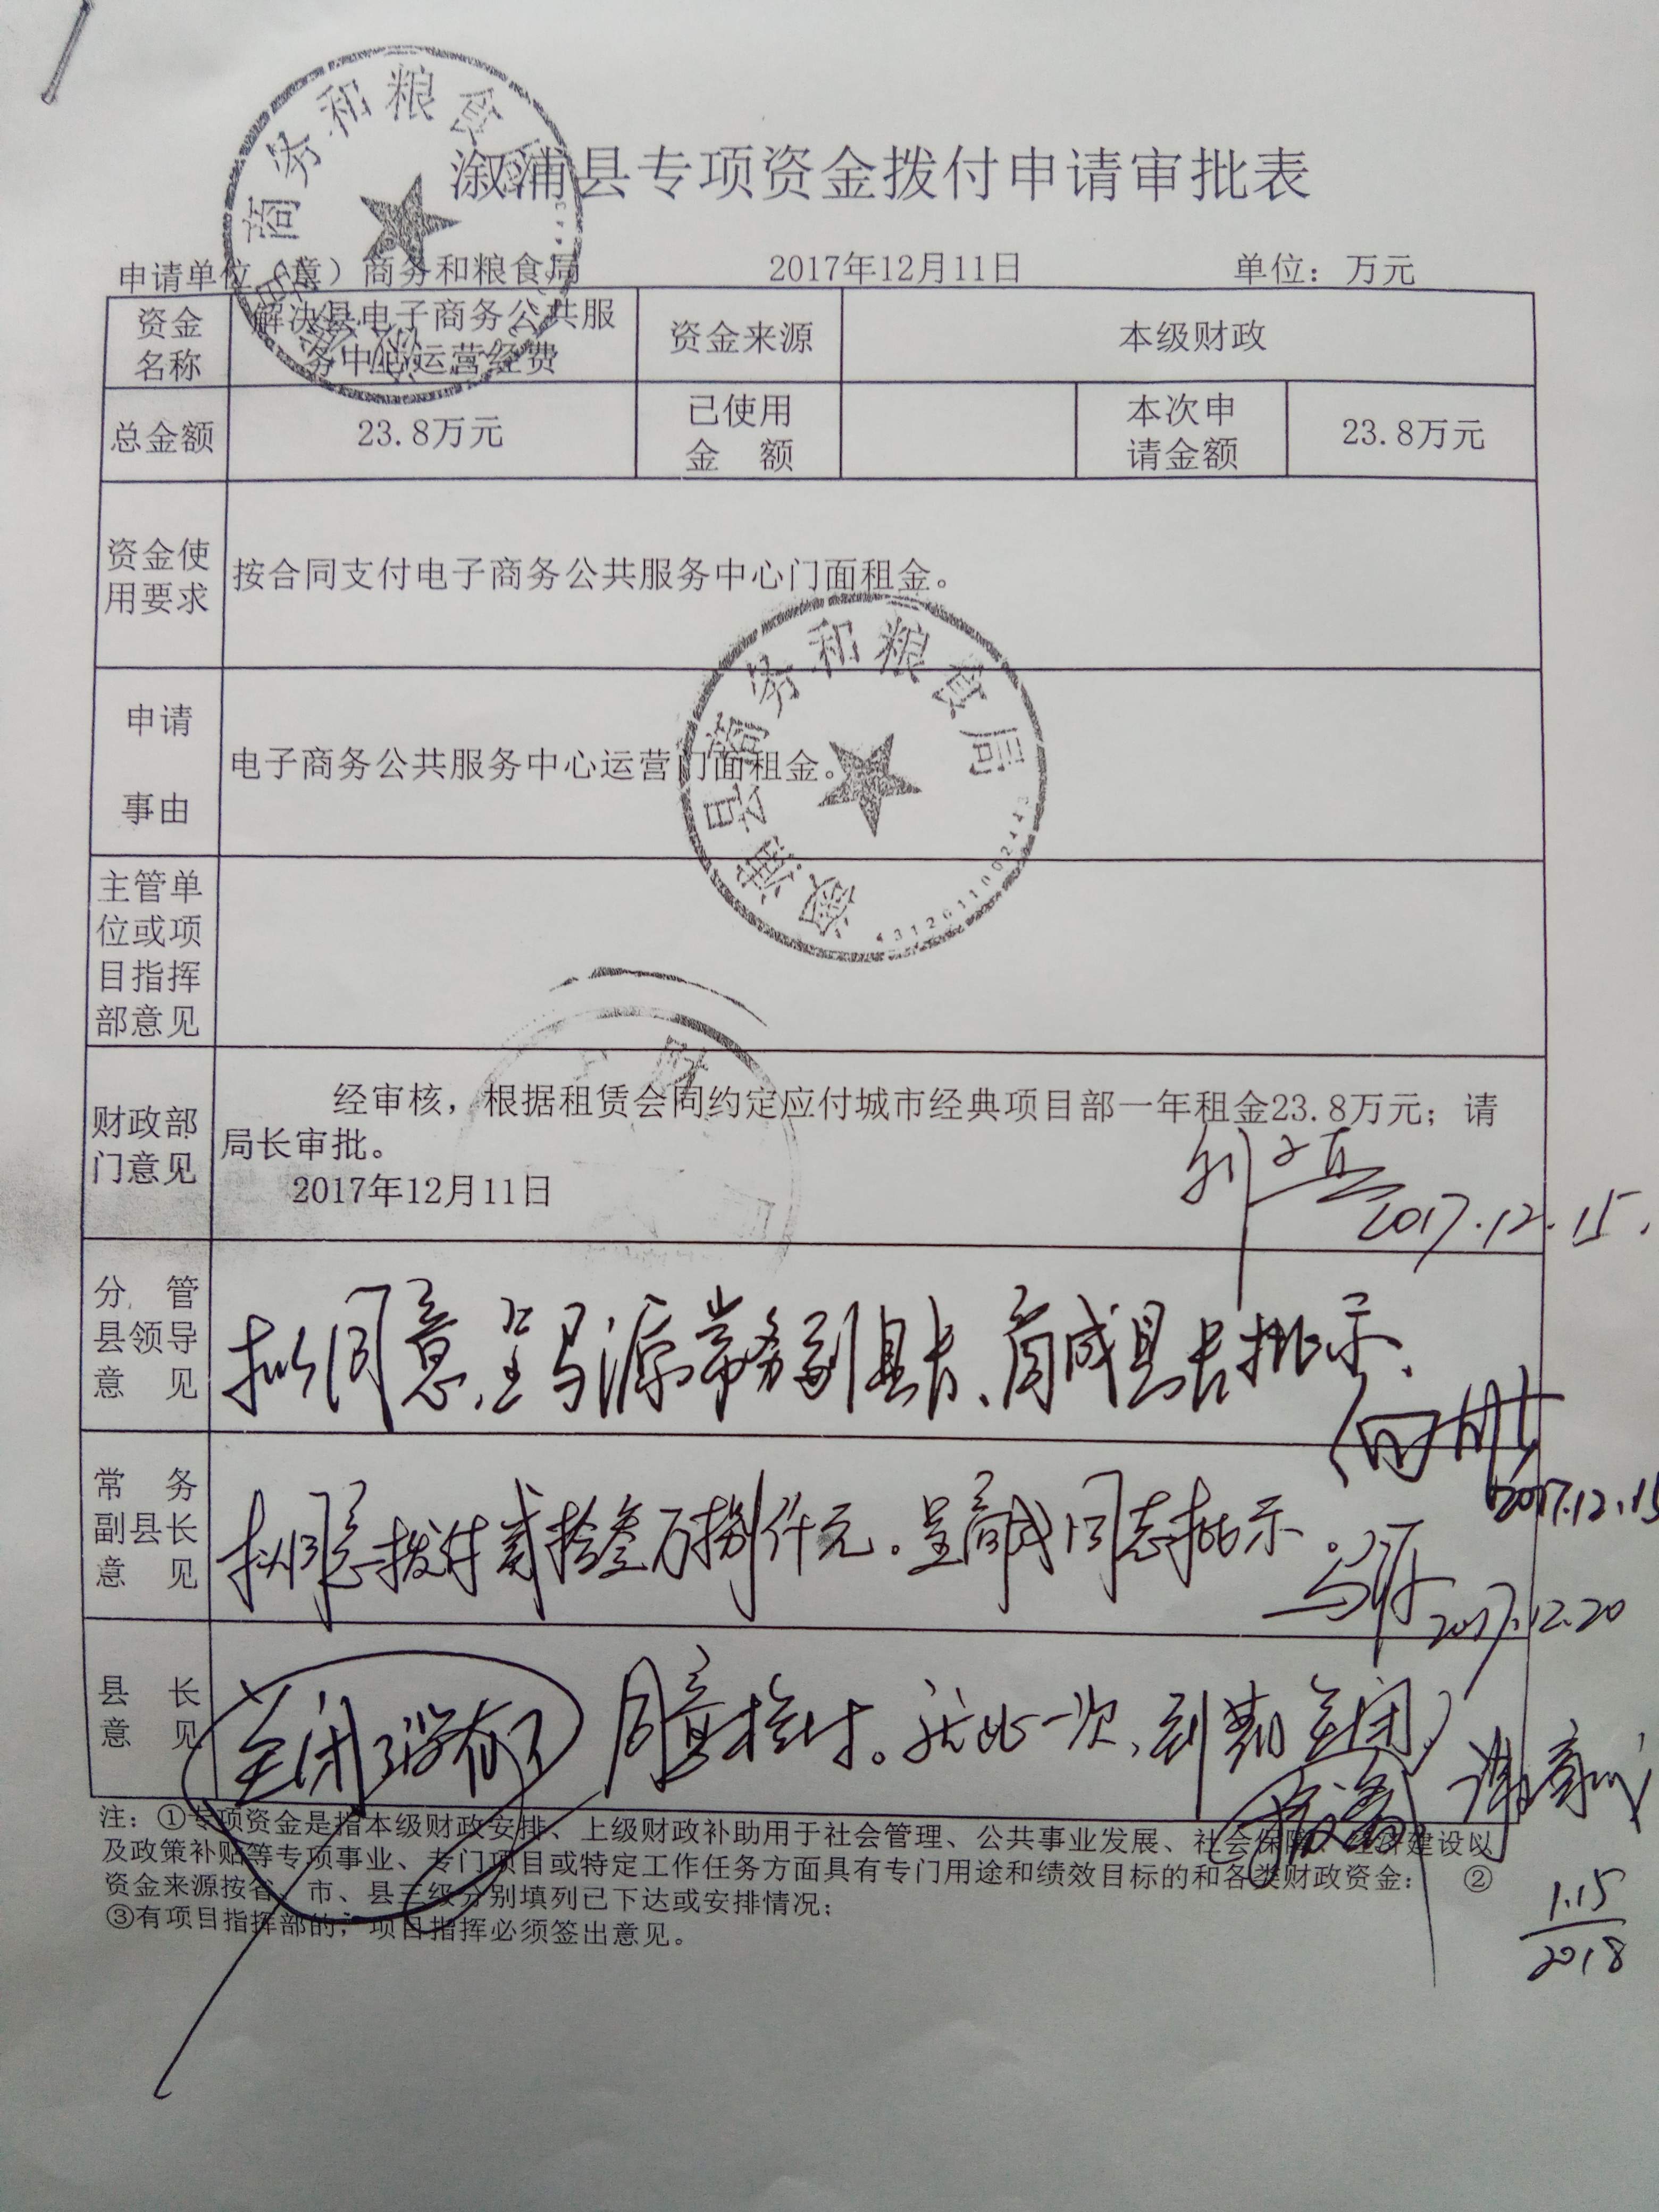 溆浦县专项资金拨付申请审批表
申请单位（章）商务和粮食局 2017年12月11日 单位：万元
资金名称
解决县电子商务公共服
务中心运营经费
资金来源
本级财政
总金额
23.8万元
已使用
金 额
本次申
请金额
23.8万元
资金使
用要求
按合同支付电子商务公共服务中心门面租金。
申请
事由
电子商务公共服务中心运营门面租金。
溆浦县商务和粮食局
主管单
位或项
目指挥
部意见
财政部
门意见
经审核，根据租赁合同约定应付城市经典项目部一年租金23.8万元；请
局长审批。
2017年12月11日
2017.12.15.
分 管
县领导
意 见
拟同意,呈马源常务副县长、商成县长批示.
2017.12.15
常 务
副县长
意 见
拟同意拨付贰拾叁万捌仟元。呈商成同志批示.
马源 2017.12.20
县 长
意 见
关闭了没有了 同意拨付。就此一次,到期关闭.
1.15
2018
注：①专项资金是指本级财政安排、上级财政补助用于社会管理、公共事业发展、社会保障、经济建设以
及政策补贴等专项事业、专门项目或特定工作任务方面具有专门用途和绩效目标的和各类财政资金： ②
资金来源按省、市、县三级分别填列已下达或安排情况；
③有项目指挥部的，项目指挥必须签出意见。